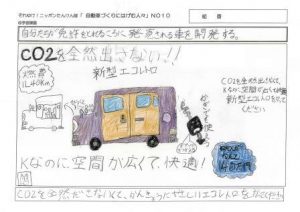 それゆけ！ニッポンたんけん隊「自動車づくりにはげむ人々」NO10
の学習課題
自分たちが免許をとれるころに発売される車を開発する。
CO2を全然出さない!!
新型エコレトロ
燃費
11.40km
CO2を全然出さなくて、
Kなのに空間が広くて快適
新型エコレトロをかって
ください
Kなのに空間が広くて、快適！
CO2を全然ださなくて、かんきょうにやさしいエコレトロを